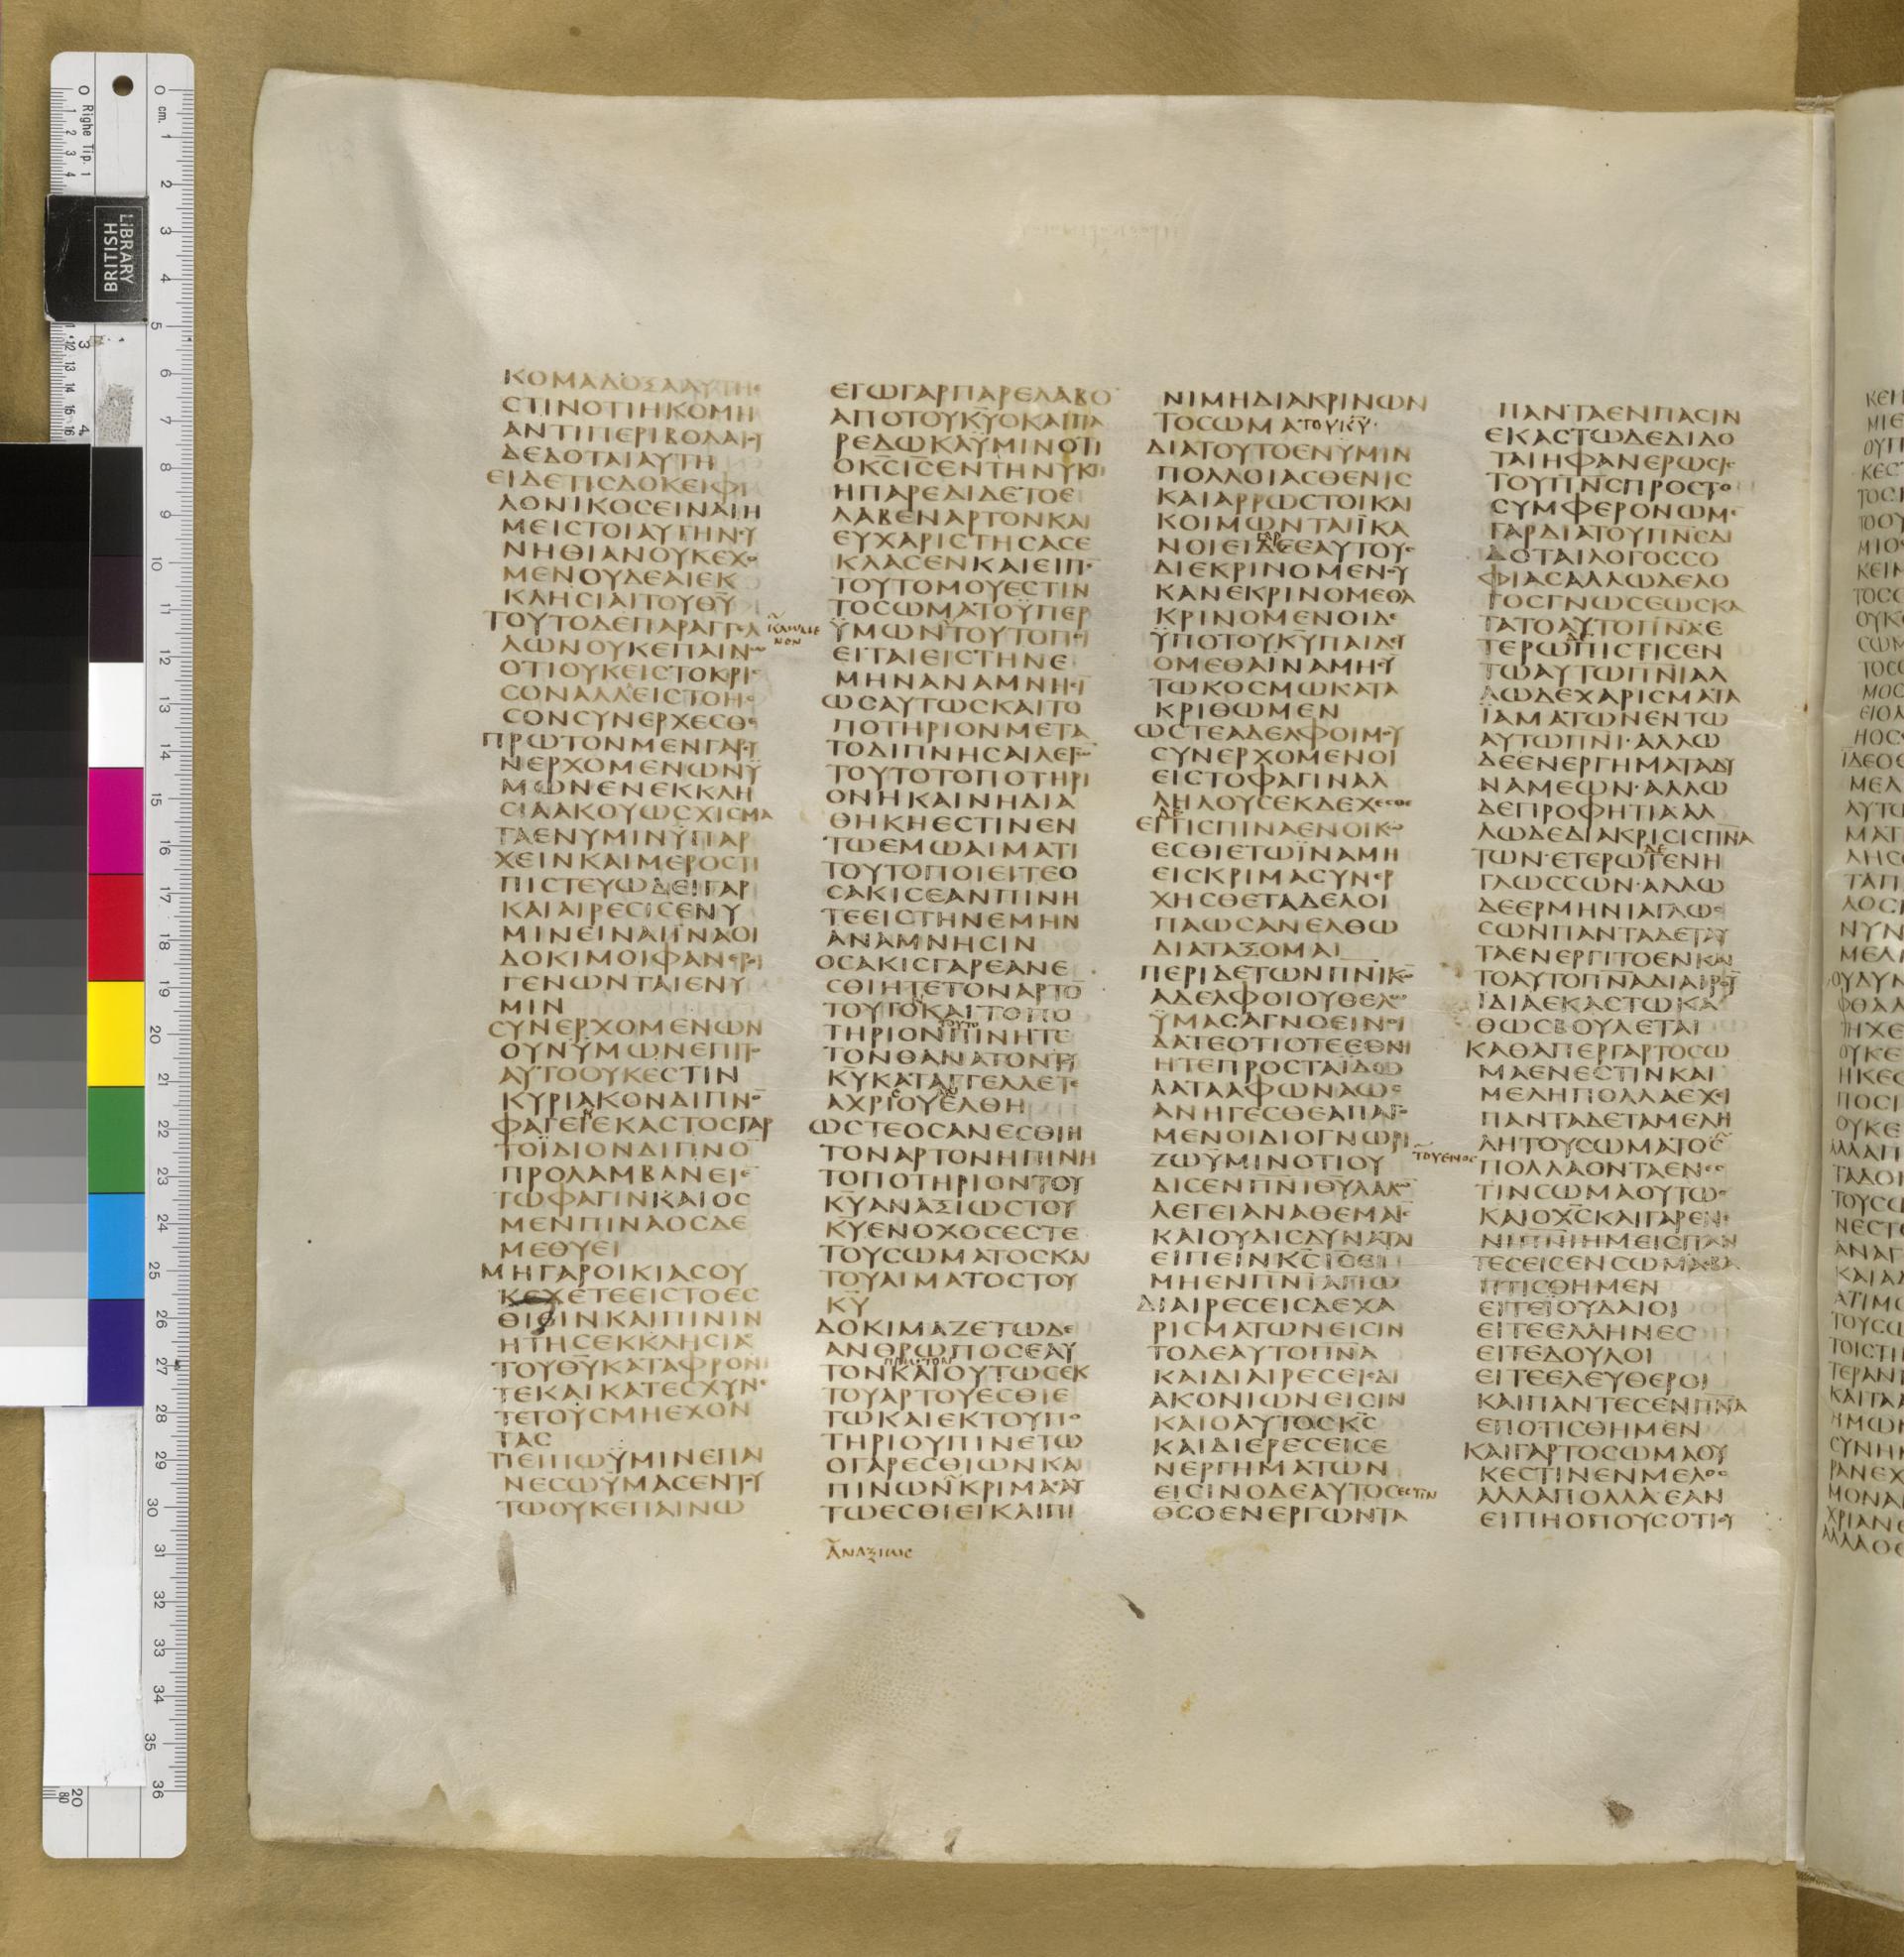 ΚΟΜΑΔΟΞΑΑΥΤΗ
ϹΤΙΝΟΤΙΗΚΟΜΗ
ΑΝΤΙΠΕΡΙΒΟΛΑΙΟΥ
ΔΕΔΟΤΑΙΑΥΤΗ
ΕΙΔΕΤΙϹΔΟΚΕΙΦΙ
ΛΟΝΙΚΟϹΕΙΝΑΙΗ
ΜΕΙϹΤΟΙΑΥΤΗΝϹΥ
ΝΗΘΙΑΝΟΥΚΕΧΟ
ΜΕΝΟΥΔΕΑΙΕΚ
ΚΛΗϹΙΑΙΤΟΥΘΥ
ΤΟΥΤΟΔΕΠΑΡΑΓΓΕΛ
ΛΩΝΟΥΚΕΠΑΙΝΩ
ΟΤΙΟΥΚΕΙϹΤΟΚΡΙϹ
ϹΟΝΑΛΛΕΙϹΤΟΗϹ
ϹΟΝϹΥΝΕΡΧΕϹΘΕ
ΠΡΩΤΟΝΜΕΝΓΑΡϹΥ
ΝΕΡΧΟΜΕΝΩΝΫ
ΜΩΝΕΝΕΚΚΛΗ
ϹΙΑΑΚΟΥΩϹΧΙϹΜΑ
ΤΑΕΝΥΜΙΝΫΠΑΡ
ΧΕΙΝΚΑΙΜΕΡΟϹΤΙ
ΠΙϹΤΕΥΩΔΕΙΓΑΡ
ΚΑΙΑΙΡΕϹΙϹΕΝΥ
ΜΙΝΕΙΝΑΙΪΝΑΟΙ
ΔΟΚΙΜΟΙΦΑΝΕΡΟΙ
ΓΕΝΩΝΤΑΙΕΝΥ
ΜΙΝ
ϹΥΝΕΡΧΟΜΕΝΩΝ
ΟΥΝΫΜΩΝΕΠΙΤΟ
ΑΥΤΟΟΥΚΕϹΤΙΝ
ΚΥΡΙΑΚΟΝΔΙΠΝΟ
ΦΑΓΕΙΕΚΑϹΤΟϹΓΑΡ
ΤΟΪΔΙΟΝΔΙΠΝΟ
ΠΡΟΛΑΜΒΑΝΕΙΕ
ΤΩΦΑΓΙΝΚΑΙΟϹ
ΜΕΝΠΙΝΑΟϹΔΕ
ΜΕΘΥΕΙ
ΜΗΓΑΡΟΙΚΙΑϹΟΥ
ΚΕΧΕΤΕΕΙϹΤΟΕϹ
ΘΙΕΙΝΚΑΙΠΙΝΙΝ
ΗΤΗϹΕΚΚΛΗϹΙΑϹ
ΤΟΥΘΥΚΑΤΑΦΡΟΝΙ
ΤΕΚΑΙΚΑΤΕϹΧΥΝΕ
ΤΕΤΟΥϹΜΗΕΧΟΝ
ΤΑϹ
ΤΙΕΙΠΩΫΜΙΝΕΠΑΙ
ΝΕϹΩΫΜΑϹΕΝΤΟΥ
ΤΩΟΥΚΕΠΑΙΝΩ
ΕΓΩΓΑΡΠΑΡΕΛΑΒΟ
ΑΠΟΤΟΥΚΥΟΚΑΙΠΑ
ΡΕΔΩΚΑΫΜΙΝΟΤΙ
ΟΚϹΙϹΕΝΤΗΝΥΚΤΙ
ΗΠΑΡΕΔΙΔΕΤΟΕ
ΛΑΒΕΝΑΡΤΟΝΚΑΙ
ΕΥΧΑΡΙϹΤΗϹΑϹΕ
ΚΛΑϹΕΝΚΑΙΕΙΠΕ
ΤΟΥΤΟΜΟΥΕϹΤΙΝ
ΤΟϹΩΜΑΤΟΫΠΕΡ
ΫΜΩΝΤΟΥΤΟΠΟΙ
ΕΙΤΑΙΕΙϹΤΗΝΕ
ΜΗΝΑΝΑΜΝΗϹΙ
ΩϹΑΥΤΩϹΚΑΙΤΟ
ΠΟΤΗΡΙΟΝΜΕΤΑ
ΤΟΔΙΠΝΗϹΑΙΛΕΓΩ
ΤΟΥΤΟΤΟΠΟΤΗΡΙ
ΟΝΗΚΑΙΝΗΔΙΑ
ΘΗΚΗΕϹΤΙΝΕΝ
ΤΩΕΜΩΑΙΜΑΤΙ
ΤΟΥΤΟΠΟΙΕΙΤΕΟ
ϹΑΚΙϹΕΑΝΠΙΝΗ
ΤΕΕΙϹΤΗΝΕΜΗΝ
ΑΝΑΜΝΗϹΙΝ
ΟϹΑΚΙϹΓΑΡΕΑΝΕ
ϹΘΙΗΤΕΤΟΝΑΡΤΟ
ΤΟΥΤΟΚΑΙΤΟΠΟ
ΤΗΡΙΟΝΠΙΝΗΤΕ
ΤΟΝΘΑΝΑΤΟΝΤΟΥ
ΚΥΚΑΤΑΓΓΕΛΛΕΤΕ
ΑΧΡΙΟΥΕΛΘΗ
ΩϹΤΕΟϹΑΝΕϹΘΙΗ
ΤΟΝΑΡΤΟΝΗΠΙΝΗ
ΤΟΠΟΤΗΡΙΟΝΤΟΥ
ΚΥΑΝΑΞΙΩϹΤΟΥ
ΚΥΕΝΟΧΟϹΕϹΤΕ
ΤΟΥϹΩΜΑΤΟϹΚΑΙ
ΤΟΥΑΙΜΑΤΟϹΤΟΥ
ΚΥ
ΔΟΚΙΜΑΖΕΤΩΔΕ
ΑΝΘΡΩΠΟϹΕΑΥ
ΤΟΝΚΑΙΟΥΤΩϹΕΚ
ΤΟΥΑΡΤΟΥΕϹΘΙΕ
ΤΩΚΑΙΕΚΤΟΥΠΟ
ΤΗΡΙΟΥΠΙΝΕΤΩ
ΟΓΑΡΕϹΘΙΩΝΚΑΙ
ΠΙΝΩΝΚΡΙΜΑΕΑΥ
ΤΩΕϹΘΙΕΙΚΑΙΠΙ
ΑΝΑΞΙΩϹ
ΝΙΜΗΔΙΑΚΡΙΝΩΝ
ΤΟϹΩΜΑΤΟΥΚΥ
ΔΙΑΤΟΥΤΟΕΝΥΜΙΝ
ΠΟΛΛΟΙΑϹΘΕΝΙϹ
ΚΑΙΑΡΡΩϹΤΟΙΚΑΙ
ΚΟΙΜΩΝΤΑΙΪΚΑ
ΝΟΙΕΙΔΕΕΑΥΤΟΥϹ
ΔΙΕΚΡΙΝΟΜΕΝΟΥ
ΚΑΝΕΚΡΙΝΟΜΕΘΑ
ΚΡΙΝΟΜΕΝΟΙΔΕ
ΫΠΟΤΟΥΚΥΠΑΙΔΕΥ
ΟΜΕΘΑΪΝΑΜΗϹΥ
ΤΩΚΟϹΜΩΚΑΤΑ
ΚΡΙΘΩΜΕΝ
ΩϹΤΕΑΔΕΛΦΟΙΜΟΥ
ϹΥΝΕΡΧΟΜΕΝΟΙ
ΕΙϹΤΟΦΑΓΙΝΑΛ
ΛΗΛΟΥϹΕΚΔΕΧΕϹΘΕ
ΕΙΤΙϹΠΙΝΑΕΝΟΙΚΩ
ΕϹΘΙΕΤΩΪΝΑΜΗ
ΕΙϹΚΡΙΜΑϹΥΝΕΡ
ΧΗϹΘΕΤΑΔΕΛΟΙ
ΠΑΩϹΑΝΕΛΘΩ
ΔΙΑΤΑΞΟΜΑΙ
ΠΕΡΙΔΕΤΩΝΠΝΙΚΩ
ΑΔΕΛΦΟΙΟΥΘΕΛΩ
ΫΜΑϹΑΓΝΟΕΙΝΟΙ
ΔΑΤΕΟΤΙΟΤΕΕΘΝΙ
ΗΤΕΠΡΟϹΤΑΪΔΩ
ΛΑΤΑΑΦΩΝΑΩϹ
ΑΝΗΓΕϹΘΕΑΠΑΓΟ
ΜΕΝΟΙΔΙΟΓΝΩΡΙ
ΖΩΫΜΙΝΟΤΙΟΥ
ΔΙϹΕΝΠΝΙΘΥΛΑΛΩ
ΛΕΓΕΙΑΝΑΘΕΜΑΙϹ
ΚΑΙΟΥΔΙϹΔΥΝΑΤΑΙ
ΕΙΠΕΙΝΚϹΙϹΕΙ
ΜΗΕΝΠΝΙΑΓΙΩ
ΔΙΑΙΡΕϹΕΙϹΔΕΧΑ
ΡΙϹΜΑΤΩΝΕΙϹΙΝ
ΤΟΔΕΑΥΤΟΠΝΑ
ΚΑΙΔΙΑΙΡΕϹΕΙϹΔΙ
ΑΚΟΝΙΩΝΕΙϹΙΝ
ΚΑΙΟΑΥΤΟϹΚϹ
ΚΑΙΔΙΕΡΕϹΕΙϹΕ
ΝΕΡΓΗΜΑΤΩΝ
ΕΙϹΙΝΟΔΕΑΥΤΟϹΕϹΤΙΝ
ΘϹΟΕΝΕΡΓΩΝΤΑ
ΠΑΝΤΑΕΝΠΑϹΙΝ
ΕΚΑϹΤΩΔΕΔΙΔΟ
ΤΑΙΗΦΑΝΕΡΩϹΙϹ
ΤΟΥΠΝϹΠΡΟϹΤΟ
ϹΥΜΦΕΡΟΝΩΜΕ
ΓΑΡΔΙΑΤΟΥΠΝϹΔΙ
ΔΟΤΑΙΛΟΓΟϹϹΟ
ΦΙΑϹΑΛΛΩΔΕΛΟ
ΓΟϹΓΝΩϹΕΩϹΚΑ
ΤΑΤΟΑΥΤΟΠΝΑΕ
ΤΕΡΩΠΙϹΤΙϹΕΝ
ΤΩΑΥΤΩΠΝΙΑΛ
ΛΩΔΕΧΑΡΙϹΜΑΤΑ
ΪΑΜΑΤΩΝΕΝΤΩ
ΑΥΤΩΠΝΙ·ΑΛΛΩ
ΔΕΕΝΕΡΓΗΜΑΤΑΔΥ
ΝΑΜΕΩΝ·ΑΛΛΩ
ΔΕΠΡΟΦΗΤΙΑΑΛ
ΛΩΔΕΔΙΑΚΡΙϹΙϹΠΝΑ
ΤΩΝ·ΕΤΕΡΩΓΕΝΗ
ΓΛΩϹϹΩΝ·ΑΛΛΩ
ΔΕΕΡΜΗΝΙΑΓΛΩϹ
ϹΩΝΠΑΝΤΑΔΕΤΑΥ
ΤΑΕΝΕΡΓΙΤΟΕΝΚΑΙ
ΤΟΑΥΤΟΠΝΑΔΙΑΙΡΟΥ
ΪΔΙΑΕΚΑϹΤΩΚΑ
ΘΩϹΒΟΥΛΕΤΑΙ
ΚΑΘΑΠΕΡΓΑΡΤΟϹΩ
ΜΑΕΝΕϹΤΙΝΚΑΙ
ΜΕΛΗΠΟΛΛΑΕΧΕΙ
ΠΑΝΤΑΔΕΤΑΜΕΛΗ
ΛΗΤΟΥϹΩΜΑΤΟϹ
ΠΟΛΛΑΟΝΤΑΕΝΕϹ
ΤΙΝϹΩΜΑΟΥΤΩϹ
ΚΑΙΟΧϹΚΑΙΓΑΡΕΝΕ
ΝΙΠΝΙΗΜΕΙϹΠΑΝ
ΤΕϹΕΙϹΕΝϹΩΜΑΕΒΑ
ΠΤΙϹΘΗΜΕΝ
ΕΙΤΕΪΟΥΔΑΙΟΙ
ΕΙΤΕΕΛΛΗΝΕϹ
ΕΙΤΕΔΟΥΛΟΙ
ΕΙΤΕΕΛΕΥΘΕΡΟΙ
ΚΑΙΠΑΝΤΕϹΕΝΠΝΑ
ΕΠΟΤΙϹΘΗΜΕΝ
ΚΑΙΓΑΡΤΟϹΩΜΑΟΥ
ΚΕϹΤΙΝΕΝΜΕΛΟϹ
ΑΛΛΑΠΟΛΛΑΕΑΝ
ΕΙΠΗΟΠΟΥϹΟΤΙΟΥ